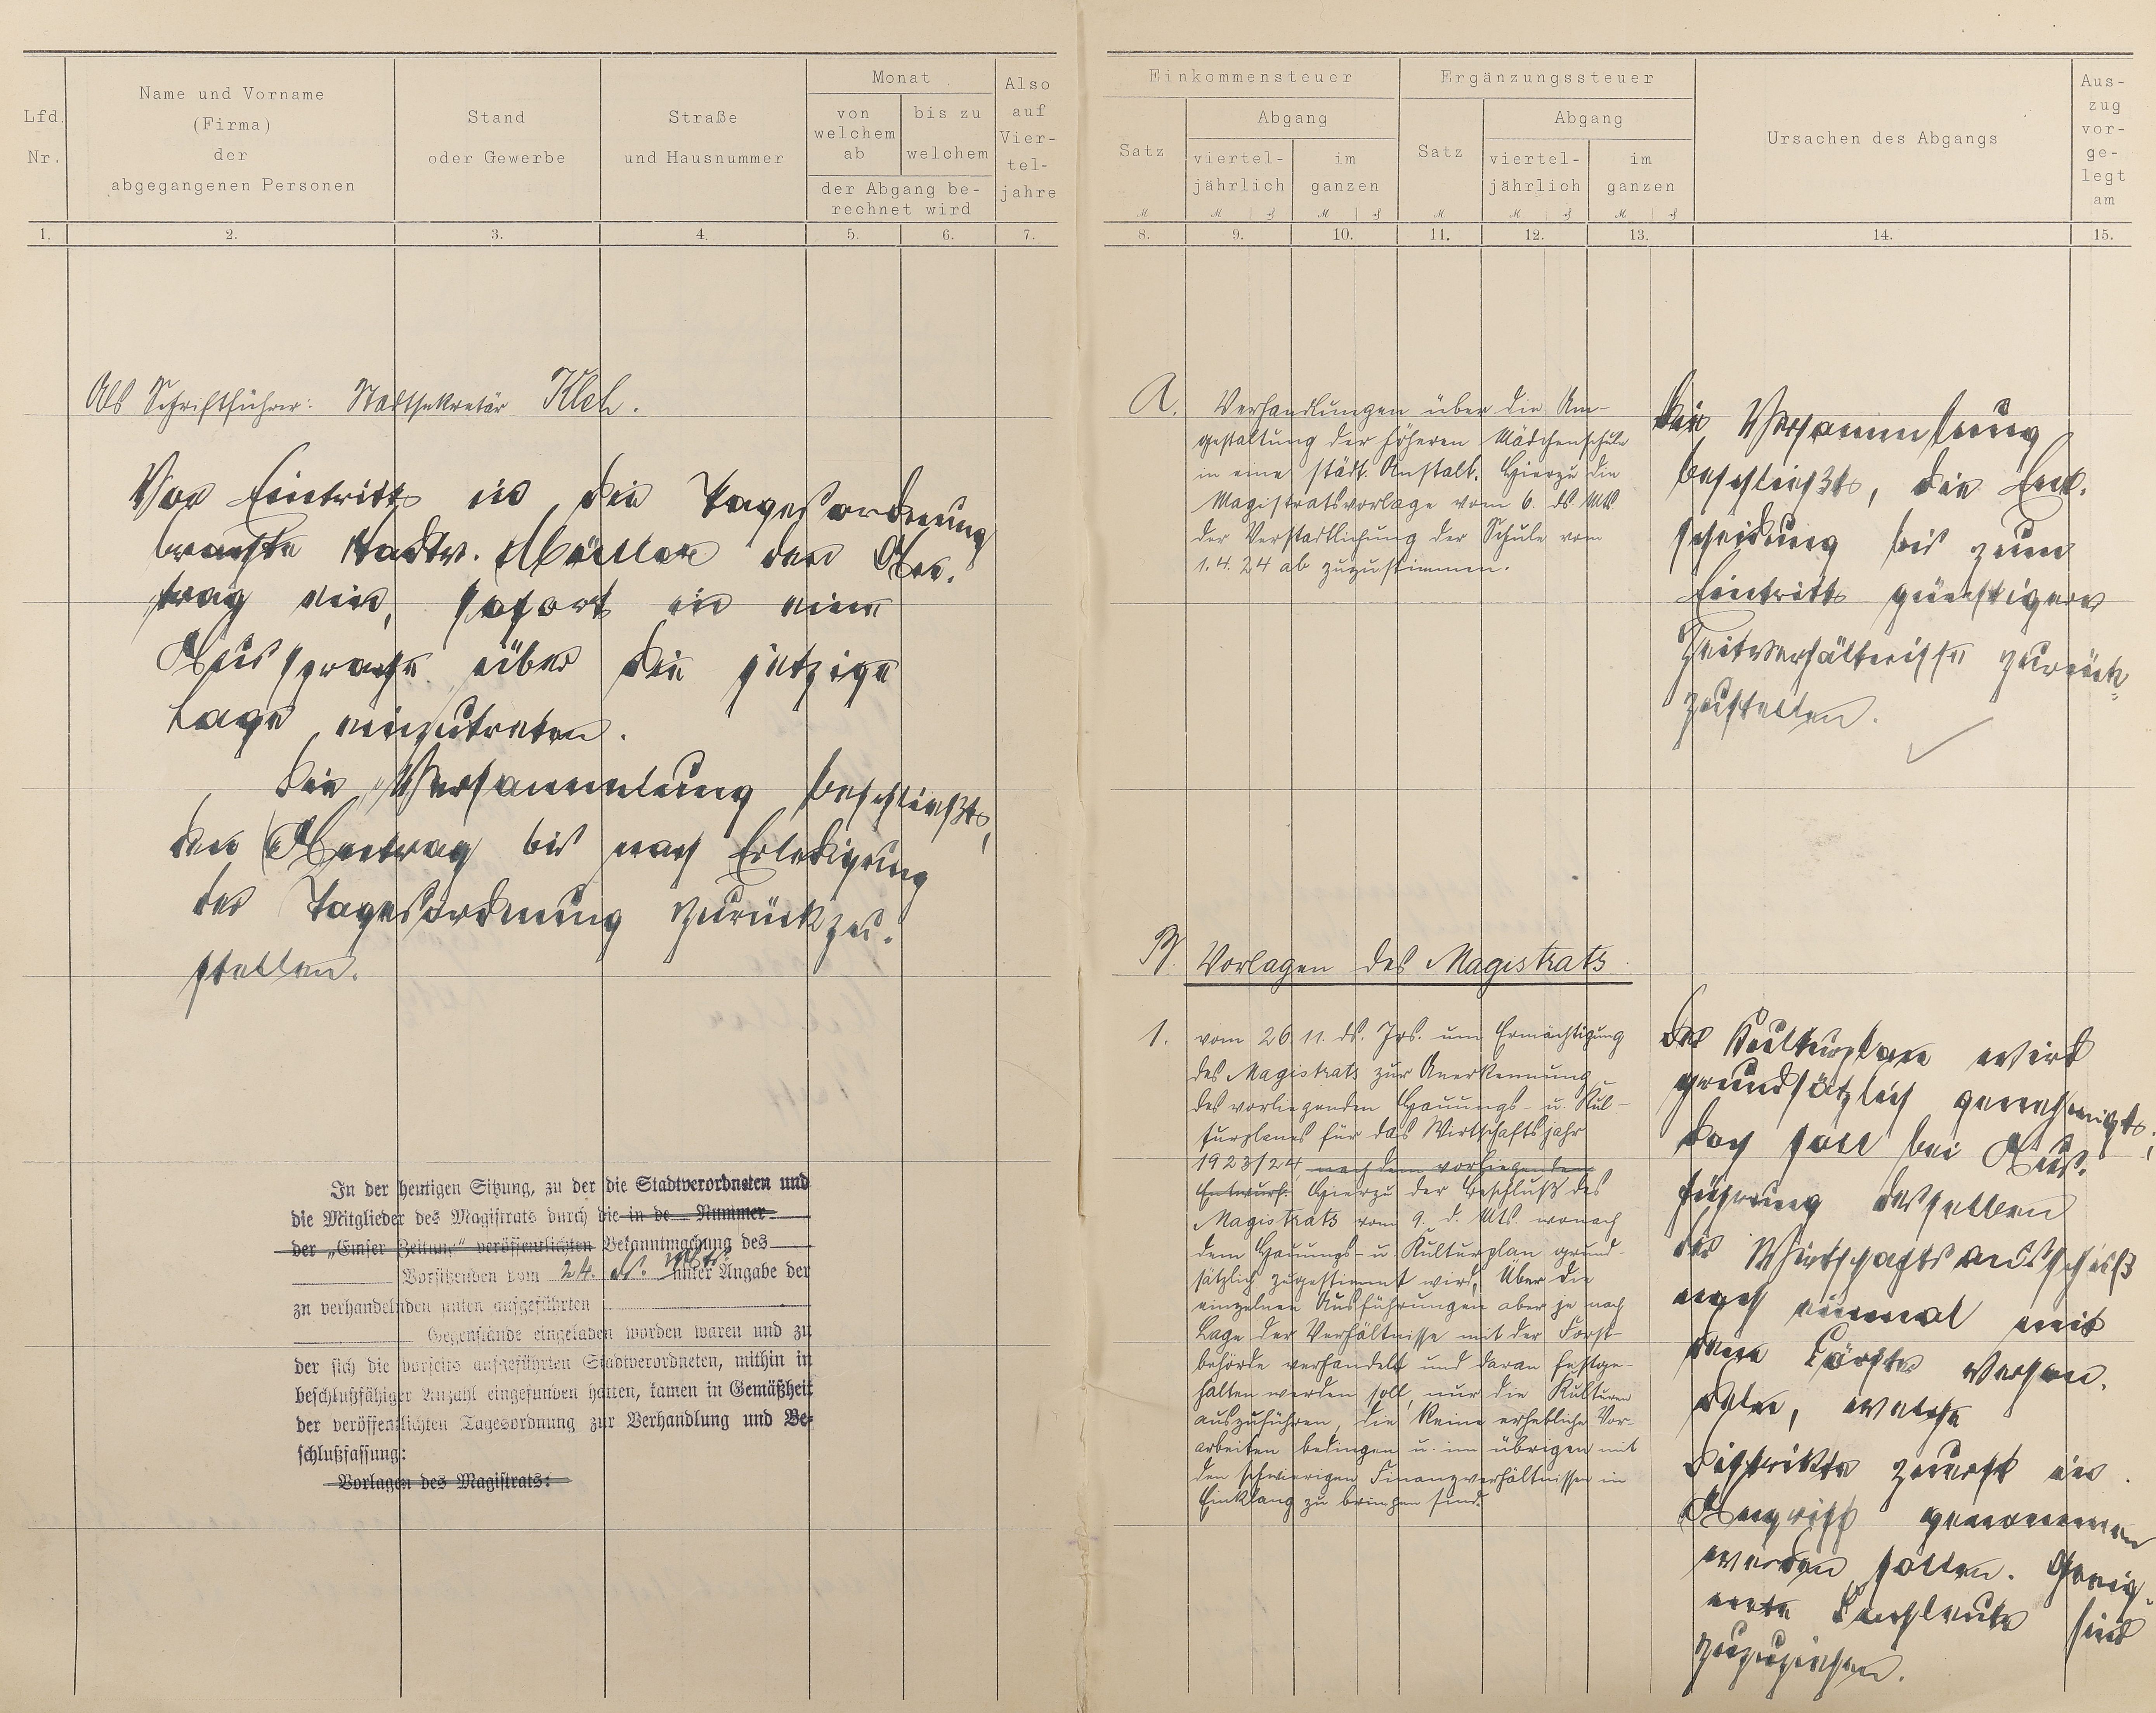 Lfd. Nr.
Name und Vorname
(Firma)
der
abgegangenen Personen
Stand
oder Gewerbe
Straße
und Hausnummer
Monat
von welchem ab
bis zu welchem
der Abgang be-
rechnet wird
Also auf Vier-
tel-
jahre
1. 2. 3. 4. 5. 6. 7.
Als Schriftführer: Stadtsekretär
Vor Eintritt in die Tagesordnung
brachte Stadtv. Müller den An-
trag ein, sofort in eine
Aussprache über die jetzige
Lage einzutreten.
Die Versammlung beschließt,
den Antrag bis nach Erledigung
der Tagesordnung zurückzu-
stellen.
In der heutigen Sitzung, zu der die Stadtverordneten und
die Mitglieder des Magistrats durch die in de Nummer
der „Emser Zeitung" veröffentlichten Bekanntmachung des
Vorsitzenden vom 24. ds. Mts. unter Angabe der
zu verhandelnden unten aufgeführten
Gegenstände eingeladen worden waren und zu
der sich die vorseits aufgeführten Stadtverordneten, mithin in
beschlußfähiger Anzahl eingefunden hatten, kamen in Gemäßheit
der veröffentlichten Tagesordnung zur Verhandlung und Be-
schlußfassung:
Vorlagen des Magistrats:
Einkommensteuer
Satz
Abgang
viertel-
jährlich
im
ganzen
Ergänzungssteuer
Satz
Abgang
viertel-
jährlich
im
ganzen
Ursachen des Abgangs
Aus-
zug
vor-
ge-
legt
am
8. 9. 10. 11. 12. 13. 14. 15.
A. Verhandlungen über die Um-
gestaltung der höheren Mädchenschule
in eine städt. Anstalt. Hierzu die
Magistratsvorlage vom 6. ds. Mts
der Verstadtlichung der Schule vom
1.4.24 ab zuzustimmen.
Die Versammlung
beschließt, die Ent-
scheidung bis zum
Eintritt günstigerer
Zeitverhältnisse zurück-
zustellen.
B. Vorlagen des Magistrats
1. vom 26.11. ds. Jrs. um Ermächtigung
des Magistrats zur Anerkennung
des vorliegenden Hauungs- u. Kul-
turplanes für das Wirtschaftsjahr
1923/24 nach dem vorliegenden
Entwurf. Hierzu der Beschluß des
Magistrats vom 9. d. Mts. wonach
dem Hauungs- u. Kulturplan grund-
sätzlich zugestimmt wird, Über die
einzelnen Ausführungen aber je nach
Lage der Verhältnisse mit der Forst-
behörde verhandelt und daran festge-
halten werden soll, nur die Kulturen
auszuführen, die keine erhebliche Vor-
arbeiten bedingen u. im übrigen mit
den schwierigen Finanzverhältnissen in
Einklang zu bringen sind.
Der Kulturplan wird
grundsätzlich genehmigt;
doch soll bei Aus-
führung desselben
der Wirtschaftsausschuß
noch einmal mit
dem Förster verhan-
deln, welche
Distrikte zuerst in
Angriff genommen
werden sollen. Geeig-
nete Fachleute sind
zuzuziehen.